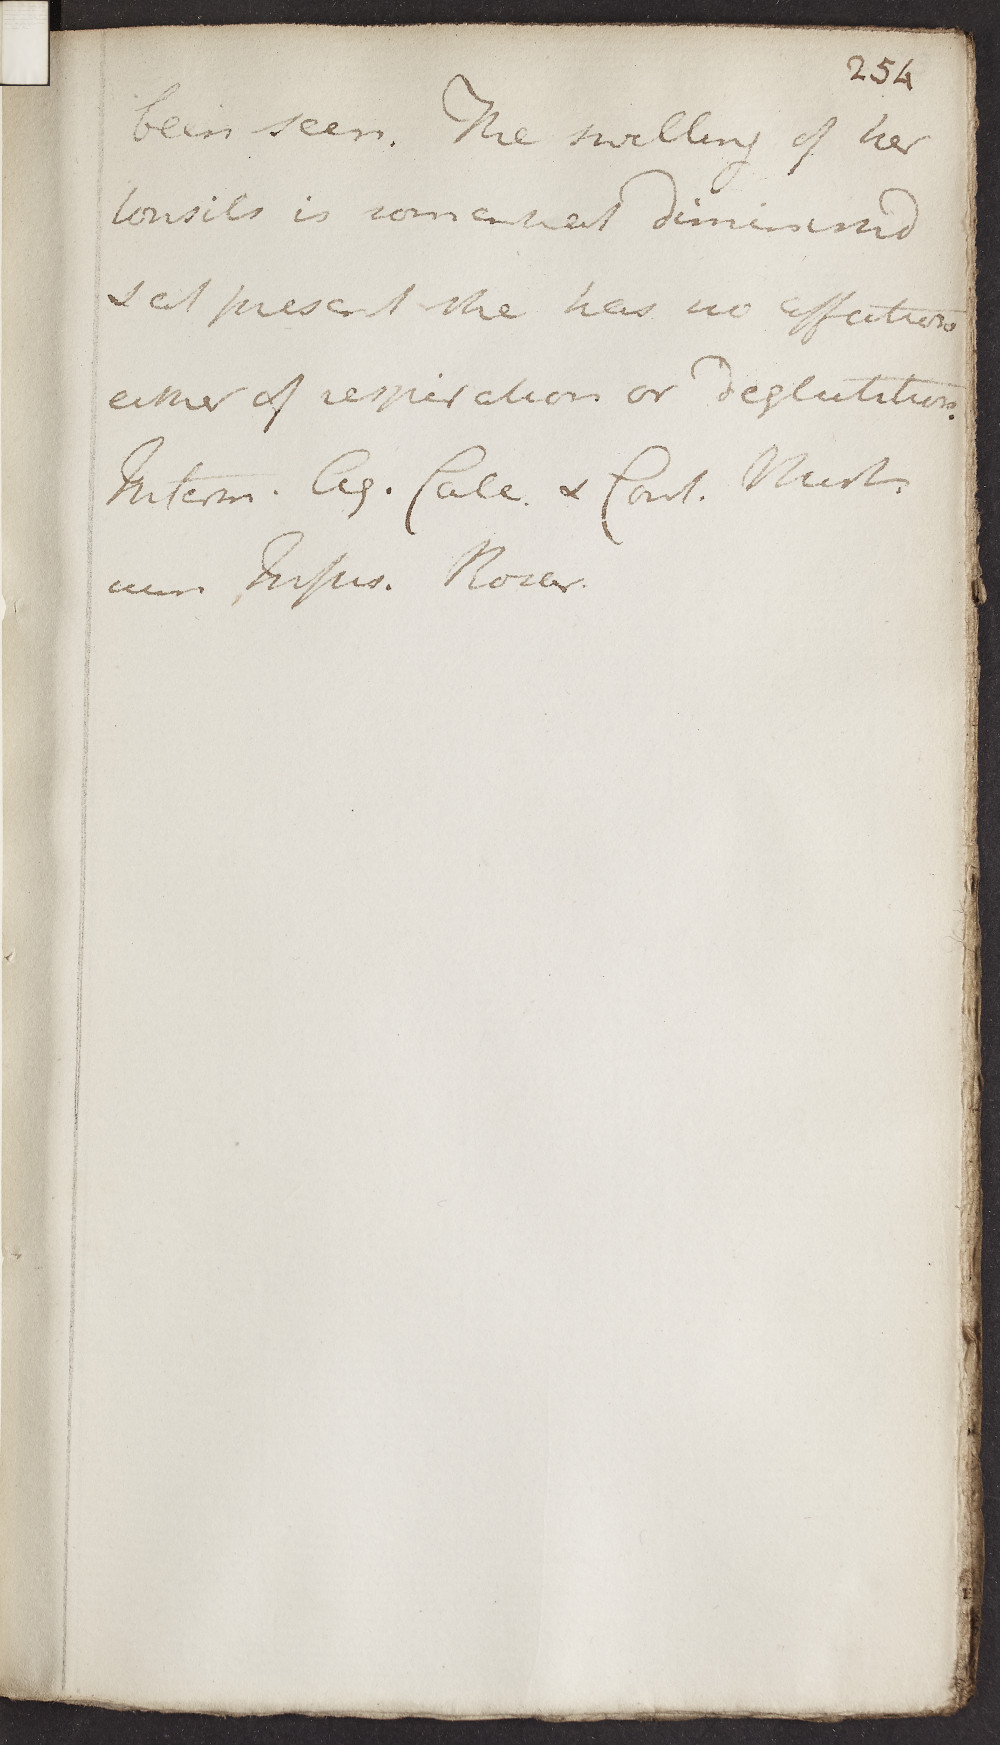 254
been seen. The swelling of her
tonsils is somewhat diminished
& at present she has no affection
either of respiration or deglutition.
Interm. Aq. Calc. & Cont.
cum Infus. Rosar.